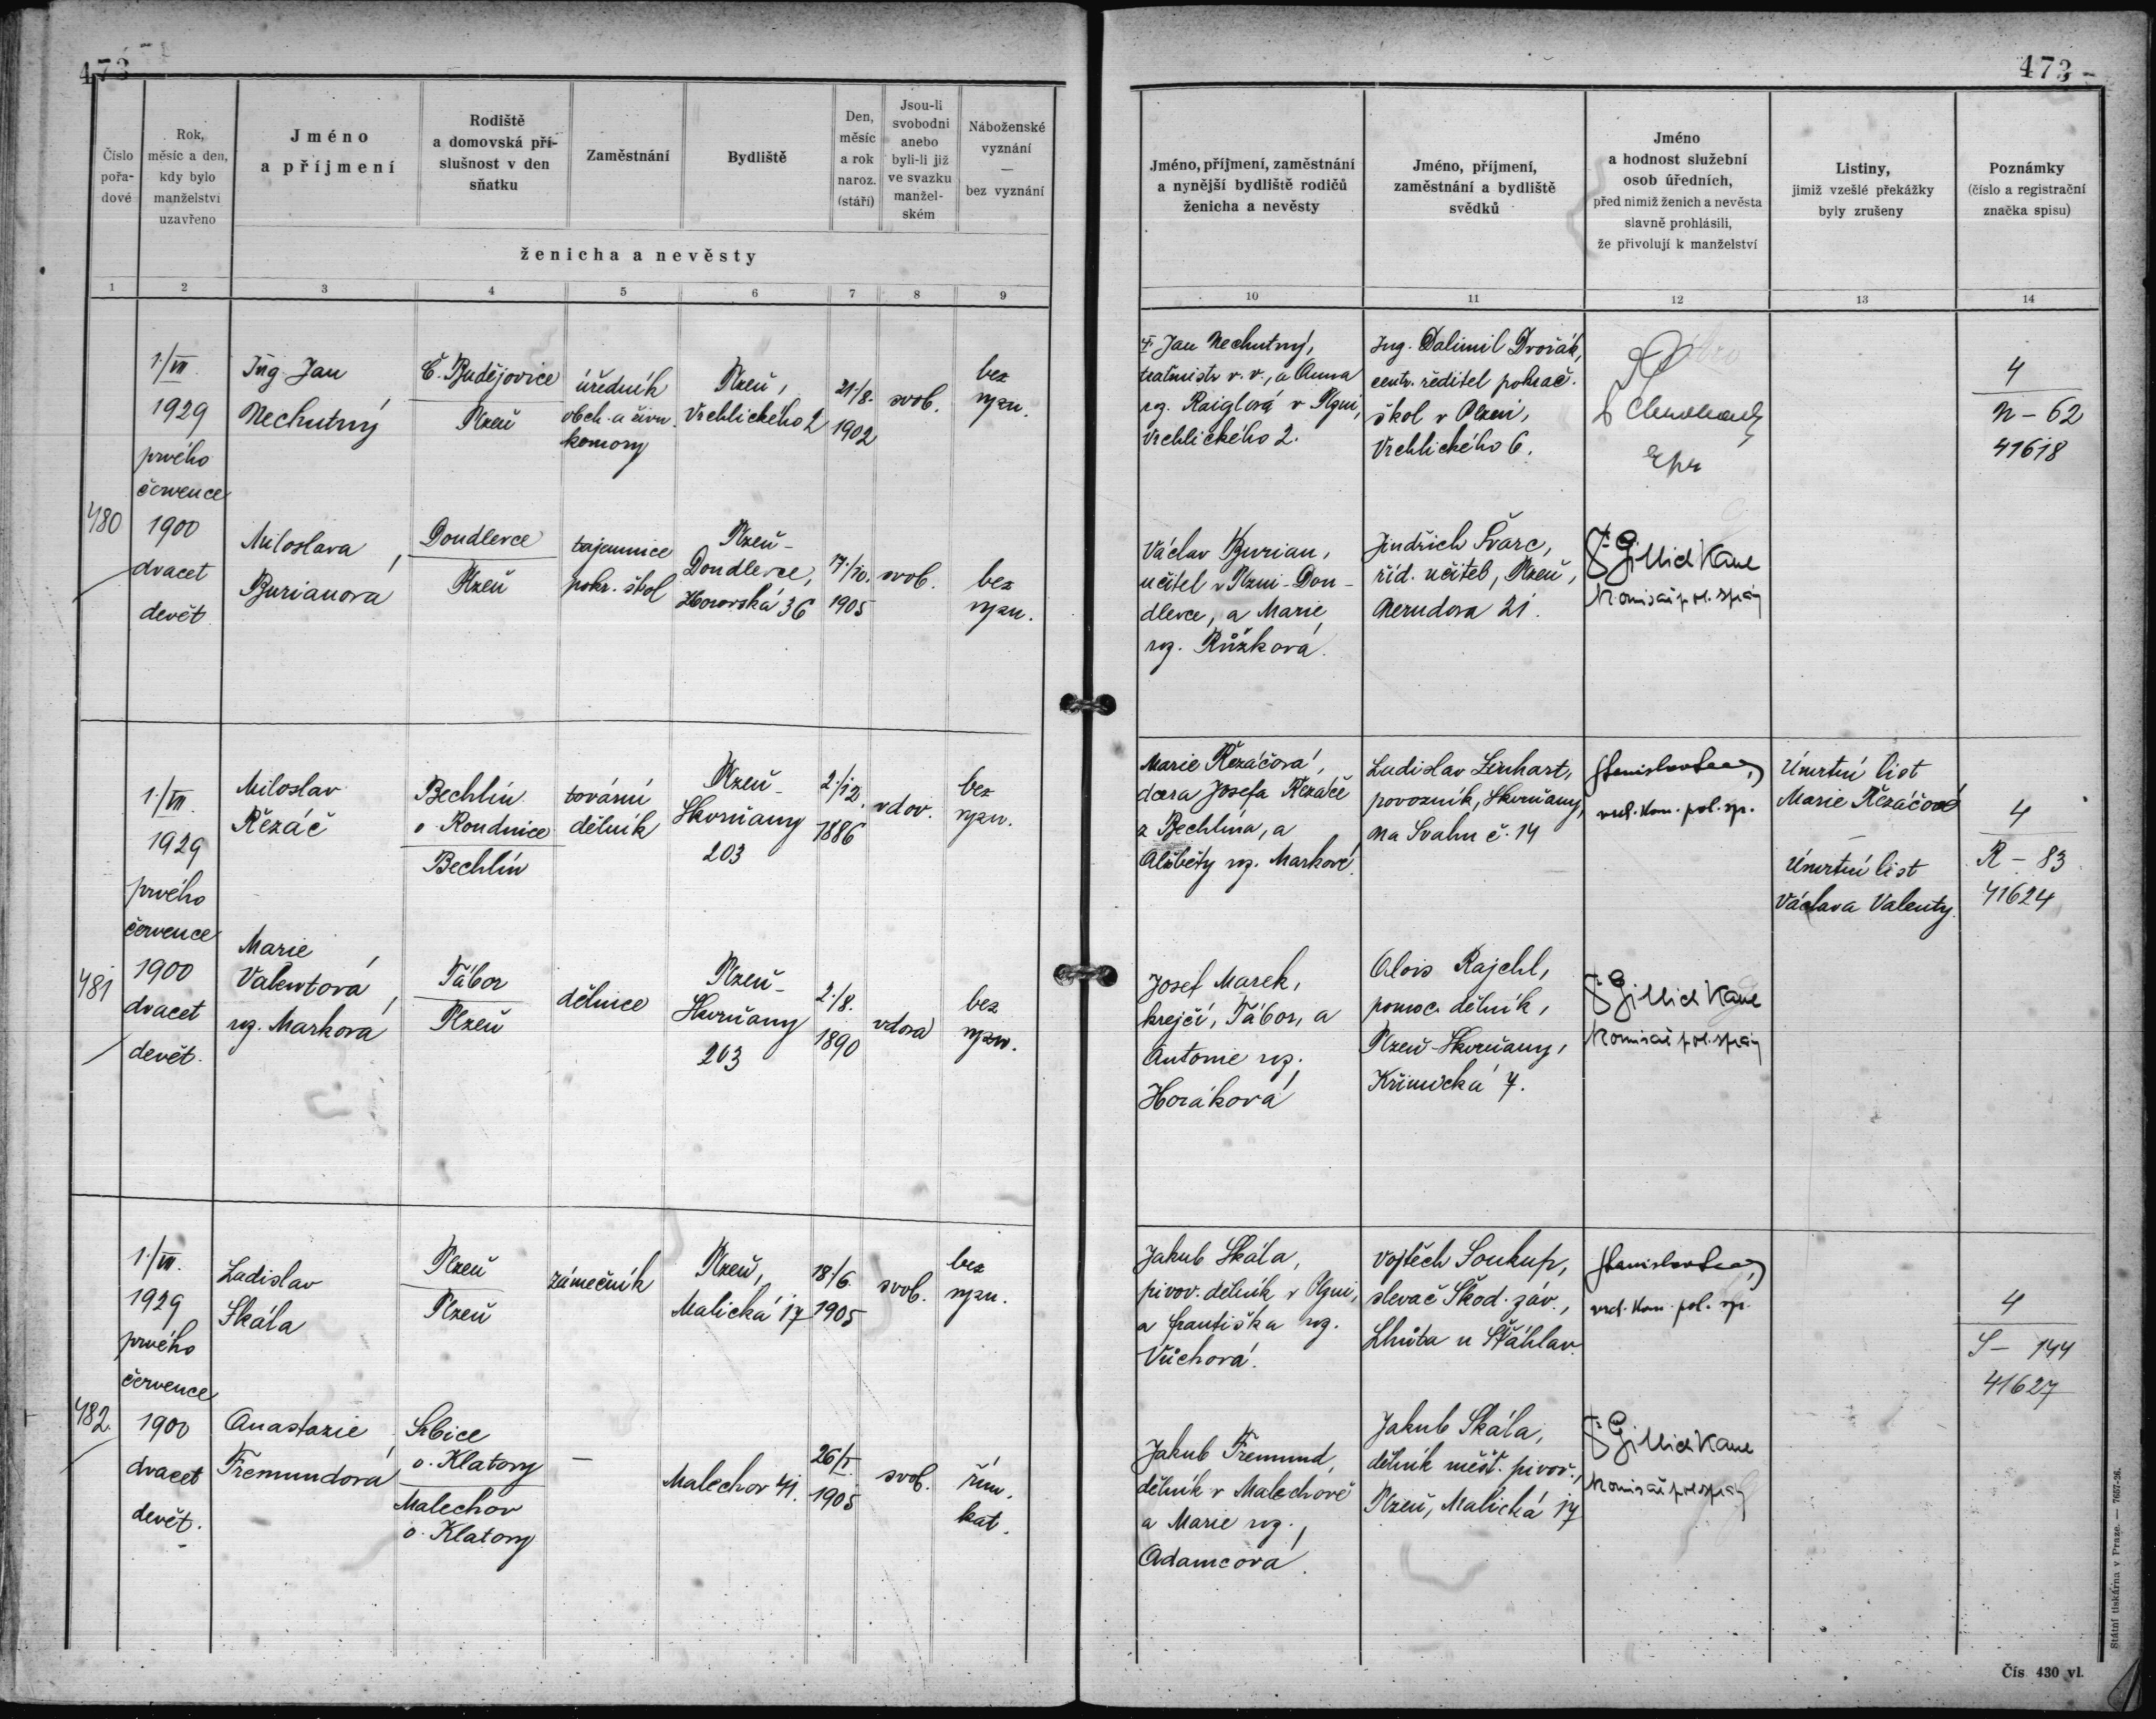 473
473
Číslo pořadové
Rok, měsíc a den, kdy bylo manželství uzavřeno
Jméno a příjmení
Rodiště a domovská příslušnost v den sňatku
Zaměstnání
Bydliště
Den, měsíc a rok naroz. (stáří)
Jsou-li svobodni anebo byli-li již ve svazku manželském
Náboženské vyznání — bez vyznání
ženicha a nevěsty
Jméno, příjmení, zaměstnání a nynější bydliště rodičů ženicha a nevěsty
Jméno, příjmení, zaměstnání a bydliště svědků
Jméno a hodnost služební osob úředních, před nimiž ženich a nevěsta slavně prohlásili, že přivolují k manželství
Listiny, jimiž vzešlé překážky byly zrušeny
Poznámky (číslo a registrační značka spisu)
1 2 3 4 5 6 7 8 9 10 11 12 13 14
480
1./VII.
1929
prvého
července
1900
dvacet
devět
Ing. Jan
Nechutný
Č. Budějovice
Plzeň
úředník
obch. a živn.
komory
Plzeň,
Vrchlického 2
21/8.
1902
svob.
bez
vyzn.
Jan Nechutný,
traťmistr v. v., a Anna
roz. Raiglová v Plzni,
Vrchlického 2.
Ing. Dalimil Dvořák,
centr. ředitel pokrač.
škol v Plzni,
Vrchlického 6.
4
N - 62
41618
Miloslava
Burianová
Doudlevce
Plzeň
tajemnice
pokr. škol
Plzeň-
Doudlevce,
Horovská 36
17./10.
1905
svob.
bez
vyzn.
Václav Burian,
učitel v Plzni-Dou-
dlevce, a Marie,
roz. Růžková.
Jindřich Švarc,
říd. učitel, Plzeň,
Nerudova 21.
Komisař pol. správy
481
1./VII.
1929
prvého
července
1900
dvacet
devět.
Miloslav
Řezáč
Bechlín
o. Roudnice
Bechlín
tovární
dělník
Plzeň-
Skvrňany
203
2./12.
1886
vdov.
bez
vyzn.
Marie Řezáčová,
dcera Josefa Řezáče
z Bechlína, a
Alžběty roz. Markové.
Ladislav Lenhart,
povozník, Skvrňany,
Na Svahu č. 14
vrch. kom. pol. sp.
Úmrtní list
Marie Řezáčové
—
Úmrtní list
Václava Valenty.
4
R - 83
41624
Marie
Valentová,
roz. Marková
Tábor
Plzeň
dělnice
Plzeň-
Skvrňany
203
2./8.
1890
vdova
bez
vyzn.
Josef Marek,
krejčí, Tábor, a
Antonie roz.
Horáková
Alois Rajchl,
pomoc. dělník,
Plzeň-Skvrňany,
Křimická 7.
Komisař pol. správy
482.
1./VII.
1929
prvého
července
1900
dvacet
devět.
Ladislav
Skála
Plzeň
Plzeň
zámečník
Plzeň,
Malická 17
18/6.
1905
svob.
bez
vyzn.
Jakub Skála,
pivov. dělník v Plzni,
a Františka roz.
Vůchová.
Vojtěch Soukup,
slevač Škod. záv.,
Lhůta u Šťáhlav.
vrch. kom. pol. sp.
4
S - 144
41627
Anastazie
Fremundová
Srbice
o. Klatovy
Malechov
o. Klatovy
—
Malechov 41.
26/I.
1905
svob.
řím.
kat.
Jakub Fremund,
dělník v Malechově
a Marie roz.
Adamcová.
Jakub Skála,
dělník měšť. pivov.,
Plzeň, Malická 17
Komisař pol. správy
Státní tiskárna v Praze. — 7657-26.
Čís. 430 vl.